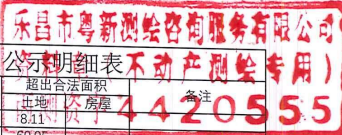 乐昌市粤新测绘咨询服务有限公司
公示明细表
不动产测绘专用)
超出合法面积
备注
土地 房屋
4420555
8.11